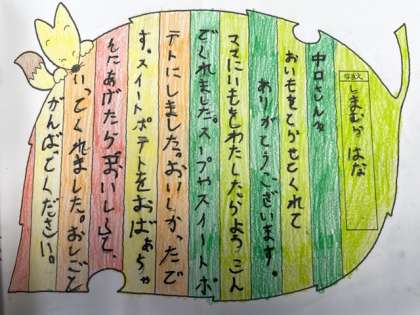 なまえ
しまむら はな
中口さんへ
おいもをとらせてくれて
ありがとうございます。
ママにいもをわたしたらようこん
でくれました。スープやスイートポ
テトにしました。おいしかったで
す。スイートポテトをおばあちゃ
んにあげたらおいしいって、
いってくれました。おしごと
がんばってください。